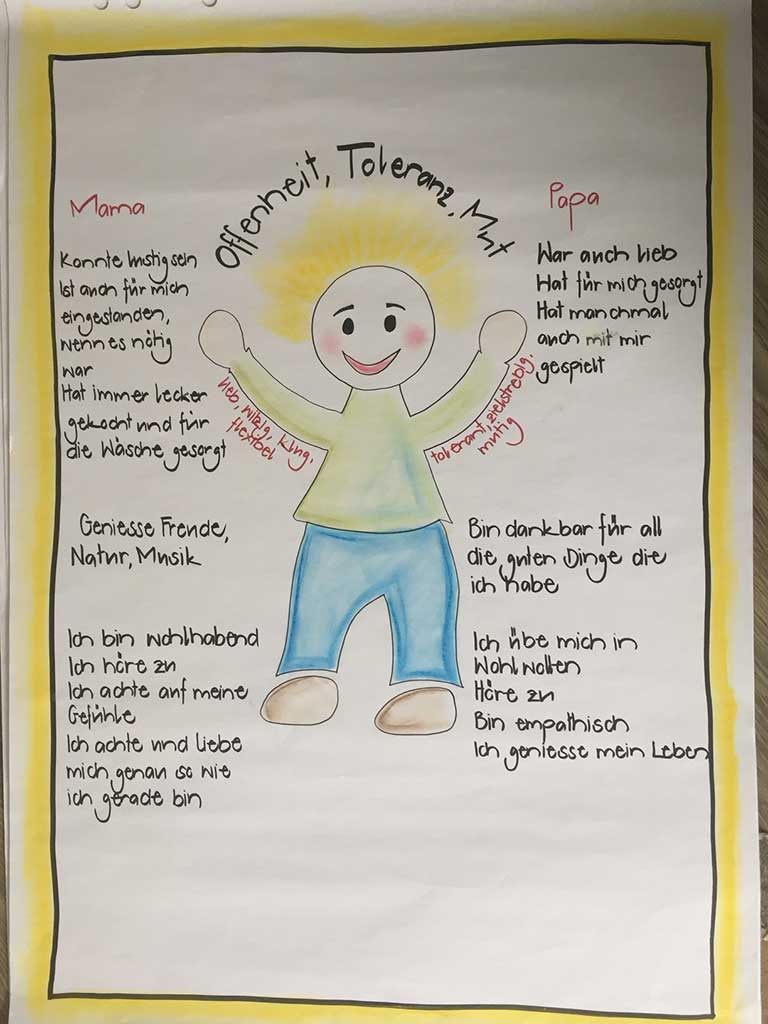 Offenheit, Toleranz, Mut
Mama
Konnte lustig sein
Ist auch für mich
eingestanden,
wenn es nötig
war
Hat immer lecker
gekocht und für
die Wäsche gesorgt
Papa
War auch lieb
Hat für mich gesorgt
Hat manchmal
auch mit mir
gespielt
lieb, witzig, klug,
flexibel
tolerant, zielstrebig,
mutig
Geniesse Freude,
Natur, Musik
Bin dankbar für all
die guten Dinge die
ich habe
Ich bin wohlhabend
Ich höre zu
Ich achte auf meine
Gefühle
Ich achte und liebe
mich genau so wie
ich gerade bin
Ich übe mich in
Wohlwollen
Höre zu
Bin empathisch
Ich geniesse mein Leben